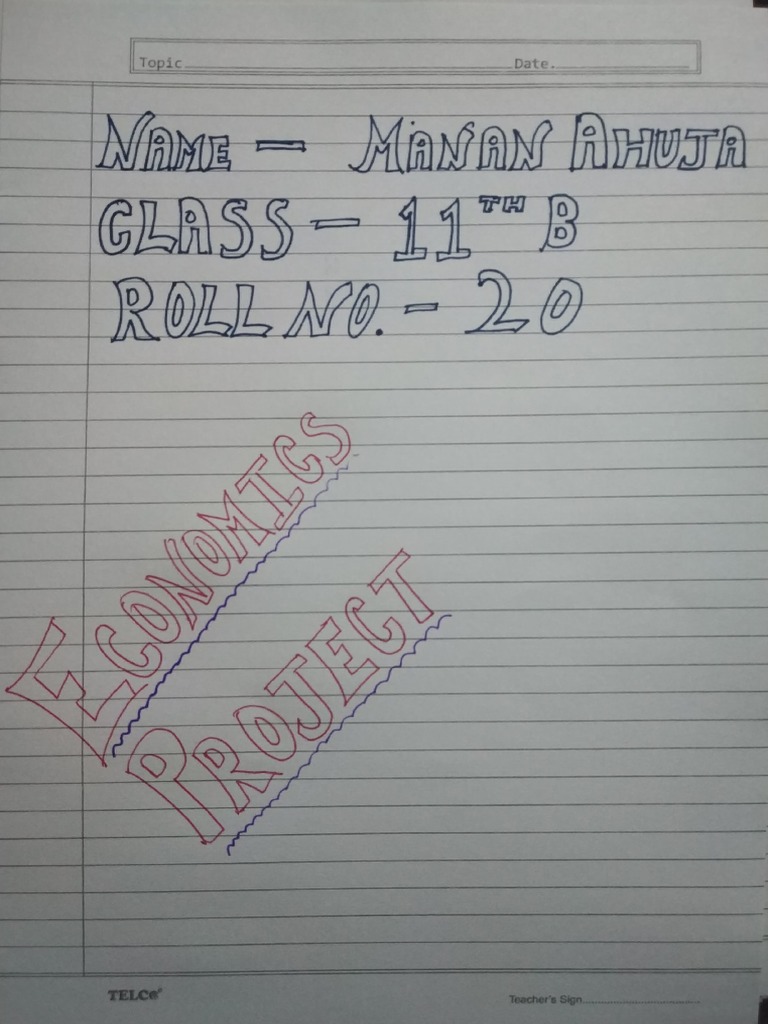 Topic Date.
NAME - MANAN AHUJA
CLASS - 11TH B
ROLL NO. - 20
ECONOMICS
PROJECT
TELCO
Teacher's Sign